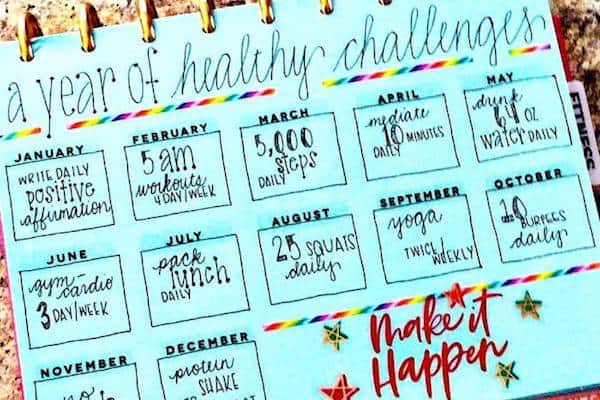 a year of healthy challenges
JANUARY
WRITE DAILY
positive
affirmation
FEBRUARY
5 am
workouts
4 DAY/WEEK
MARCH
5,000
steps
DAILY
APRIL
mediate
10 MINUTES
DAILY
MAY
drink
64 oz
water DAILY
JUNE
gym-
cardio
3 DAY/WEEK
JULY
pack
lunch
DAILY
AUGUST
25 SQUATS
daily
SEPTEMBER
yoga
TWICE
WEEKLY
OCTOBER
10
BURPEES
daily
NOVEMBER
no
DECEMBER
protein
SHAKE
make it
Happen
FITNESS